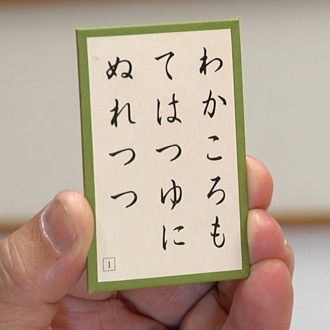 わかころも
てはつゆに
ぬれつつ
1